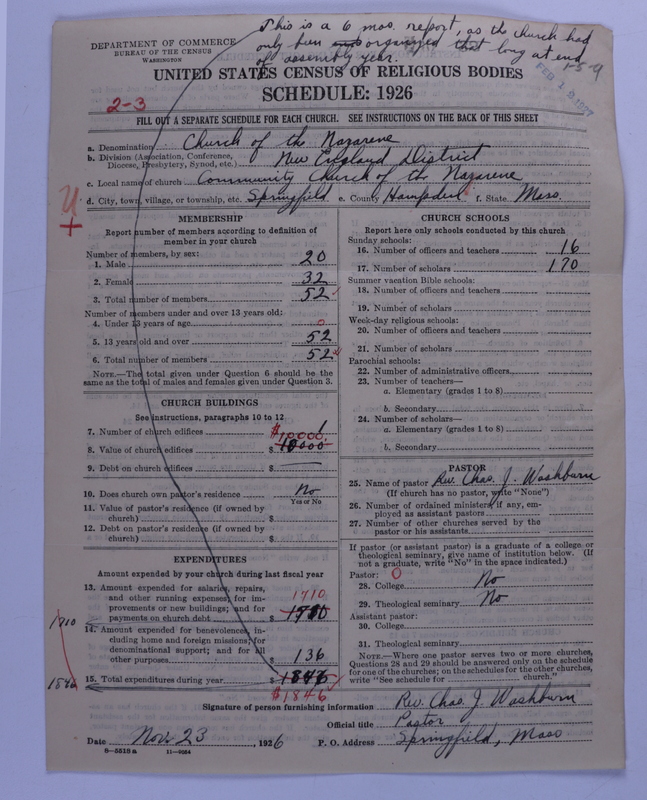 This is a 6 mos. report, as the church had
only been organized that long at end
of assembly year.
DEPARTMENT OF COMMERCE
BUREAU OF THE CENSUS
WASHINGTON
UNITED STATES CENSUS OF RELIGIOUS BODIES
SCHEDULE: 1926
2-3
FILL OUT A SEPARATE SCHEDULE FOR EACH CHURCH. SEE INSTRUCTIONS ON THE BACK OF THIS SHEET
a. Denomination Church of the Nazarene
b. Division (Association, Conference,
Diocese, Presbytery, Synod, etc.) New England District
c. Local name of church Community Church of the Nazarene
d. City, town, village, or township, etc. Springfield e. County Hampden f. State Mass.
MEMBERSHIP
Report number of members according to definition of
member in your church
Number of members, by sex:
1. Male 20
2. Female 32
3. Total number of members 52
Number of members under and over 13 years old:
4. Under 13 years of age 0
5. 13 years old and over 52
6. Total number of members 52
NOTE.—The total given under Question 6 should be the
same as the total of males and females given under Question 3.
CHURCH BUILDINGS
See instructions, paragraphs 10 to 12
7. Number of church edifices 1
$10000.
8. Value of church edifices $ 10000
9. Debt on church edifices $
10. Does church own pastor's residence No
Yes or No
11. Value of pastor's residence (if owned by
church) $
12. Debt on pastor's residence (if owned by
church) $
EXPENDITURES
Amount expended by your church during last fiscal year
13. Amount expended for salaries, repairs,
and other running expenses; for im-
provements or new buildings; and for
payments on church debt $
1710
1710
14. Amount expended for benevolences, in-
cluding home and foreign missions; for
denominational support; and for all
other purposes $ 136
15. Total expenditures during year $ 1846
1846
$1846
CHURCH SCHOOLS
Report here only schools conducted by this church
Sunday schools:
16. Number of officers and teachers 16
17. Number of scholars 170
Summer vacation Bible schools:
18. Number of officers and teachers
19. Number of scholars
Week-day religious schools:
20. Number of officers and teachers
21. Number of scholars
Parochial schools:
22. Number of administrative officers
23. Number of teachers—
a. Elementary (grades 1 to 8)
b. Secondary
24. Number of scholars—
a. Elementary (grades 1 to 8)
b. Secondary
PASTOR
25. Name of pastor Rev. Chas. J. Washburn
(If church has no pastor, write "None")
26. Number of ordained ministers, if any, em-
ployed as assistant pastors
27. Number of other churches served by the
pastor or his assistants
If pastor (or assistant pastor) is a graduate of a college or
theological seminary, give name of institution below. (If
not a graduate, write "No" in the space indicated.)
Pastor: 0
28. College No
29. Theological seminary No
Assistant pastor:
30. College
31. Theological seminary
NOTE.—Where one pastor serves two or more churches,
Questions 28 and 29 should be answered only on the schedule
for one of the churches; on the schedules for the other churches,
write "See schedule for church."
Signature of person furnishing information Rev. Chas. J. Washburn
Official title Pastor
Date Nov. 23, 1926 P. O. Address Springfield, Mass
8—5518 a